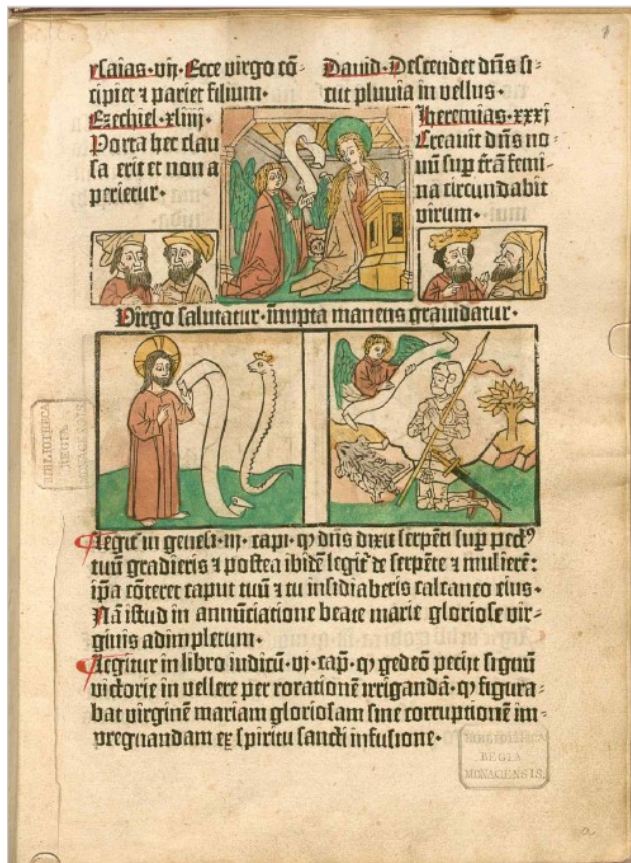 Esaias·vij· Ecce virgo cō-
cipiet ⁊ pariet filium·
Ezechiel·xliiij·
Porta hec clau
sa erit et non a
perietur·
Dauid· Descendet dñs si-
cut pluuia in vellus·
Iheremias·xxxj
Creauit dñs no-
uū sup̄ t̄rā femi-
na circundabit
virum·
Virgo salutatur· innupta manens grauidatur·
Legit̄ in genesi·iij· capi· ꝙ dñs dixit serpēti sup̄ pectꝰ
tuū gradieris ⁊ postea ibidē legit̄ de serpēte ⁊ muliere:
ip̄a cōteret caput tuū ⁊ tu insidiaberis calcaneo eius·
Nā istud in annūciatione beate marie gloriose vir-
ginis adimpletum·
Legitur in libro iudicū·vj·cap̄· ꝙ gedeō pecijt signū
victorie in vellere per rorationē irrigandā· ꝙ figura-
bat virginē mariam gloriosam sine corruptionē im-
pregnandam ex spiritu sancti infusione·
BIBLIOTHECA
REGIA
MONACENSIS
BIBLIOTHECA
REGIA
MONACENSIS.
a